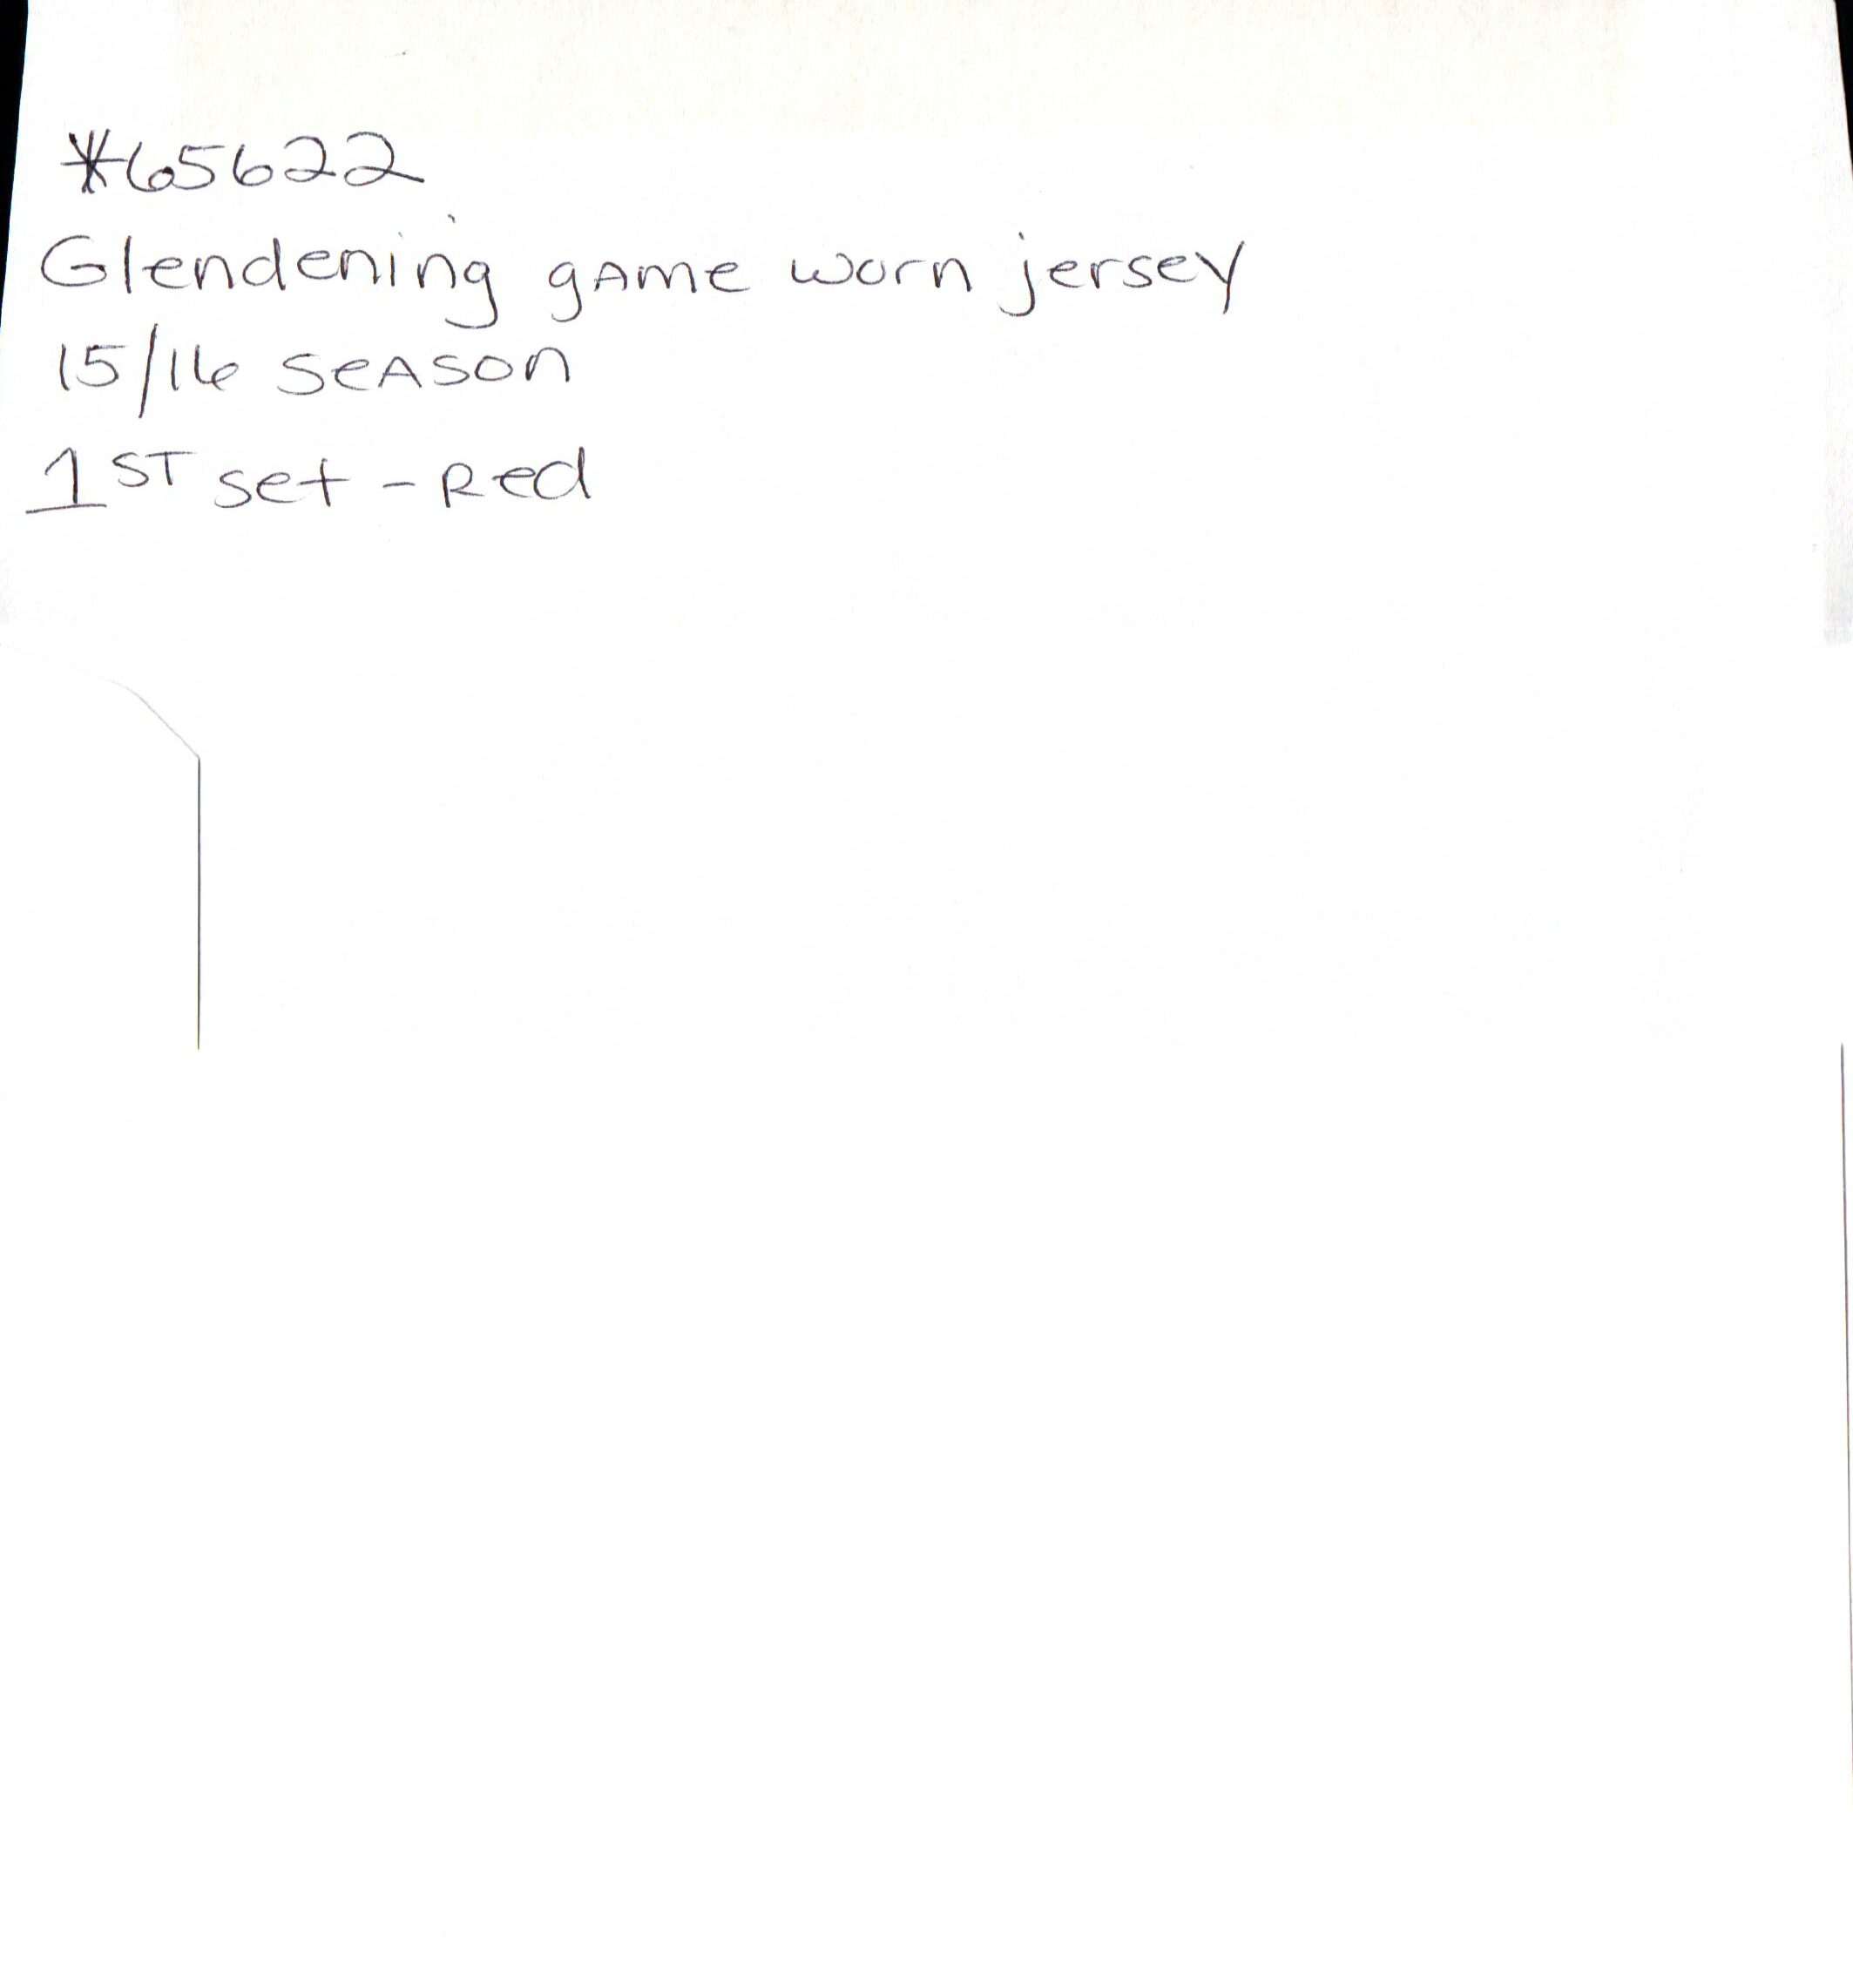 *65622
Glendening game worn jersey
15/16 season
1ST set - Red